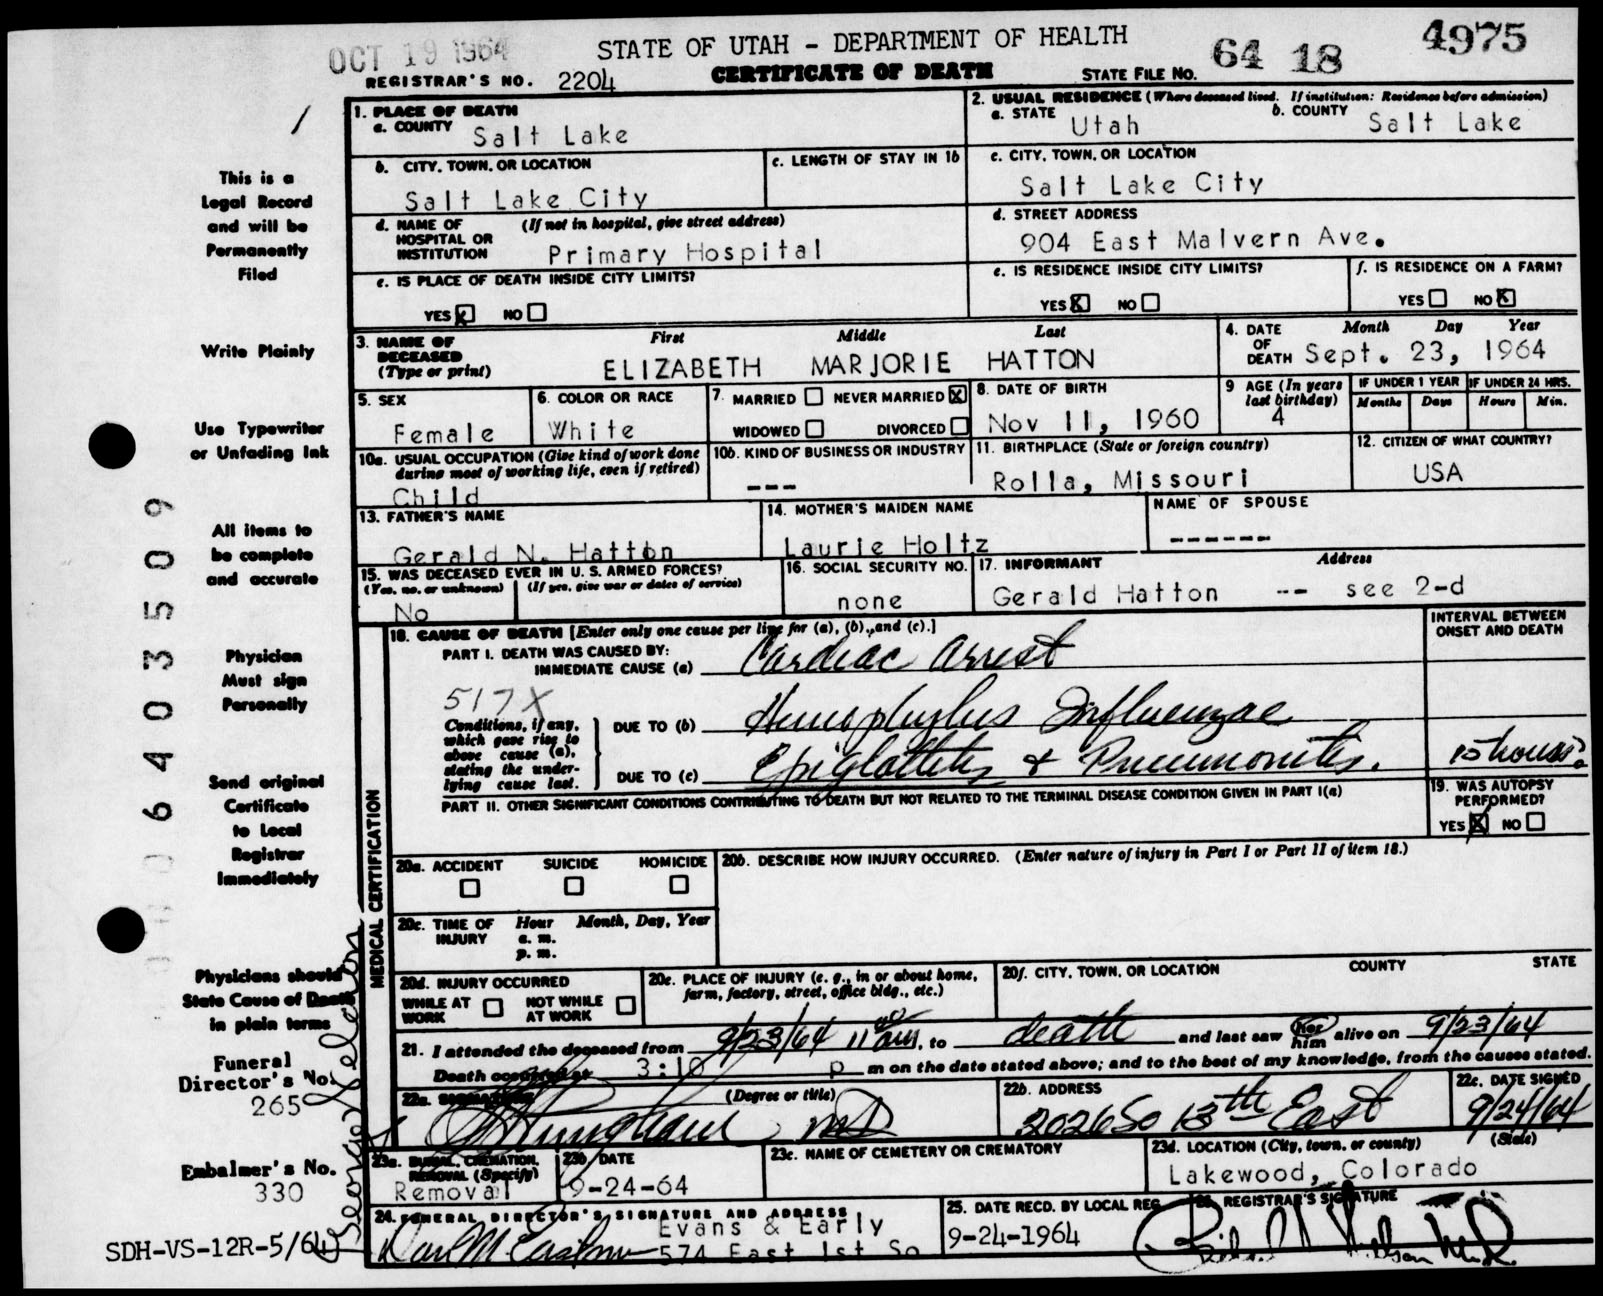 OCT 19 1964
STATE OF UTAH - DEPARTMENT OF HEALTH
64 18 4975
REGISTRAR'S NO. 2204
CERTIFICATE OF DEATH
STATE FILE NO.
1. PLACE OF DEATH
a. COUNTY Salt Lake
2. USUAL RESIDENCE (Where deceased lived. If institution: Residence before admission)
a. STATE Utah b. COUNTY Salt Lake
b. CITY, TOWN, OR LOCATION
Salt Lake City
c. LENGTH OF STAY IN 1b
c. CITY, TOWN, OR LOCATION
Salt Lake City
d. NAME OF HOSPITAL OR INSTITUTION (If not in hospital, give street address)
Primary Hospital
d. STREET ADDRESS
904 East Malvern Ave.
e. IS PLACE OF DEATH INSIDE CITY LIMITS?
YES X NO
e. IS RESIDENCE INSIDE CITY LIMITS?
YES X NO
f. IS RESIDENCE ON A FARM?
YES NO X
3. NAME OF DECEASED (Type or print)
First Middle Last
ELIZABETH MARJORIE HATTON
4. DATE OF DEATH Month Day Year
Sept. 23, 1964
5. SEX
Female
6. COLOR OR RACE
White
7. MARRIED NEVER MARRIED X
WIDOWED DIVORCED
8. DATE OF BIRTH
Nov 11, 1960
9 AGE (In years last birthday)
4
IF UNDER 1 YEAR
Months Days
IF UNDER 24 HRS.
Hours Min.
10a. USUAL OCCUPATION (Give kind of work done during most of working life, even if retired)
Child
10b. KIND OF BUSINESS OR INDUSTRY
---
11. BIRTHPLACE (State or foreign country)
Rolla, Missouri
12. CITIZEN OF WHAT COUNTRY?
USA
13. FATHER'S NAME
Gerald N. Hatton
14. MOTHER'S MAIDEN NAME
Laurie Holtz
NAME OF SPOUSE
------
15. WAS DECEASED EVER IN U. S. ARMED FORCES?
(Yes, no, or unknown) (If yes, give war or dates of service)
No
16. SOCIAL SECURITY NO.
none
17. INFORMANT Address
Gerald Hatton -- see 2-d
MEDICAL CERTIFICATION
18. CAUSE OF DEATH [Enter only one cause per line for (a), (b), and (c).]
INTERVAL BETWEEN ONSET AND DEATH
PART I. DEATH WAS CAUSED BY:
IMMEDIATE CAUSE (a) Cardiac arrest
517X
Conditions, if any, which gave rise to above cause (a), stating the underlying cause last.
DUE TO (b) Hemophylus Influenzae
DUE TO (c) Epiglottitis & Pneumonitis. 15 hours?
PART II. OTHER SIGNIFICANT CONDITIONS CONTRIBUTING TO DEATH BUT NOT RELATED TO THE TERMINAL DISEASE CONDITION GIVEN IN PART I(a)
19. WAS AUTOPSY PERFORMED?
YES X NO
20a. ACCIDENT SUICIDE HOMICIDE
20b. DESCRIBE HOW INJURY OCCURRED. (Enter nature of injury in Part I or Part II of item 18.)
20c. TIME OF INJURY Hour Month, Day, Year
a. m.
p. m.
20d. INJURY OCCURRED
WHILE AT WORK NOT WHILE AT WORK
20e. PLACE OF INJURY (e. g., in or about home, farm, factory, street, office bldg., etc.)
20f. CITY, TOWN, OR LOCATION COUNTY STATE
21. I attended the deceased from 9/23/64 11 00 am, to death and last saw her him alive on 9/23/64
Death occurred at 3:10 p m on the date stated above; and to the best of my knowledge, from the causes stated.
22a. SIGNATURE (Degree or title)
MD
22b. ADDRESS
2026 So 13th East
22c. DATE SIGNED
9/24/64
23a. BURIAL, CREMATION, REMOVAL (Specify)
Removal
23b DATE
9-24-64
23c. NAME OF CEMETERY OR CREMATORY
23d. LOCATION (City, town, or county) (State)
Lakewood, Colorado
24. FUNERAL DIRECTOR'S SIGNATURE AND ADDRESS
Evans & Early
574 East 1st So
25. DATE RECD. BY LOCAL REG.
9-24-1964
26. REGISTRAR'S SIGNATURE
This is a
Legal Record
and will be
Permanently
Filed
Write Plainly
Use Typewriter
or Unfading Ink
All items to
be complete
and accurate
Physician
Must sign
Personally
Send original
Certificate
to Local
Registrar
Immediately
Physicians should
State Cause of Death
in plain terms
Funeral
Director's No.
265
Embalmer's No.
330
SDH-VS-12R-5/64
6403509